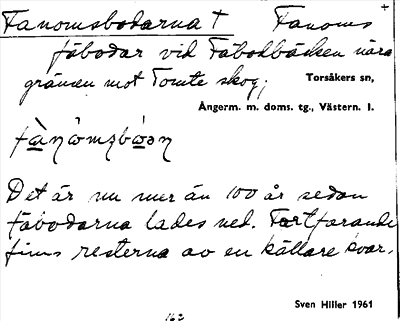 Fanomsbodarna † Fanoms +
fäbodar vid Fäbodbäcken nära
gränsen mot Tomte skog,
Torsåkers sn,
Ångerm. m. doms. tg., Västern. l.
Det är nu mer än 100 år sedan
fäbodarna lades ned. Fortfarande
finns resterna av en källare kvar.
Sven Hiller 1961
162